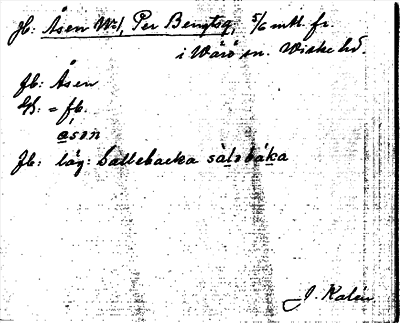 Jb: Åsen No 1, Per Bengtsg, 5/6 mtl. fr.
i Wärö sn. Wiske hd.
Jb: Åsen
Gs: = fb.
åsən
Jb: läg: Sallebacka
J. Kalén